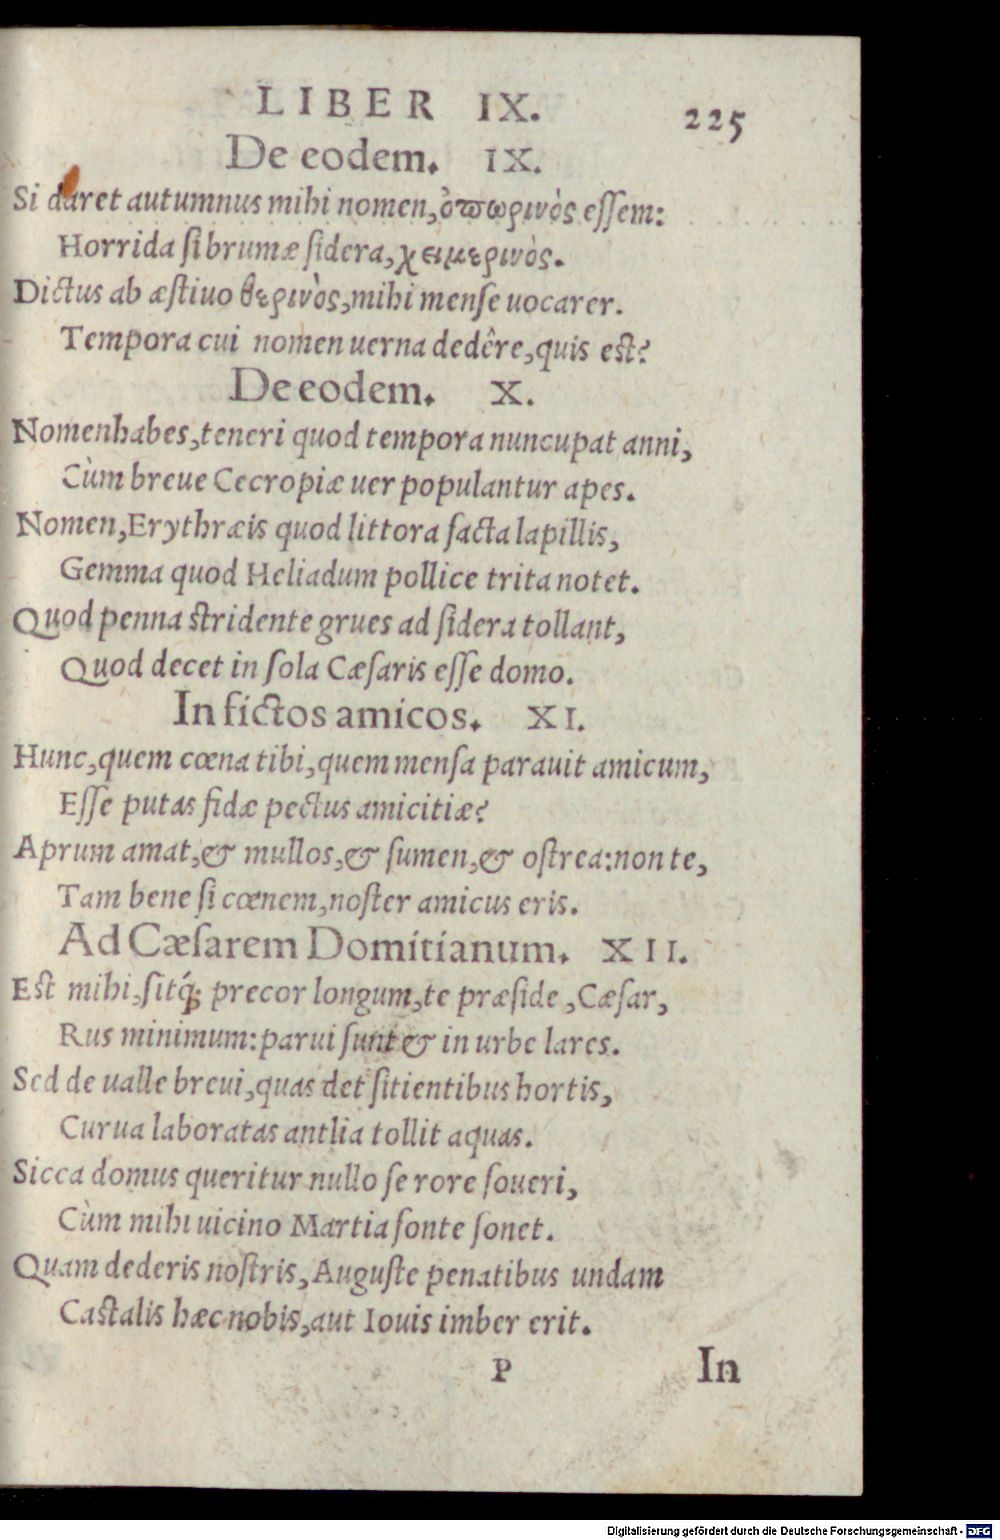 LIBER IX. 225
De eodem. IX.
Si daret autumnus mihi nomen, ὀπωρινὸς essem:
Horrida si brumæ sidera, χειμερινὸς.
Dictus ab æstiuo θερινὸς, mihi mense uocarer.
Tempora cui nomen uerna dedêre, quis est?
De eodem. X.
Nomen habes, teneri quod tempora nuncupat anni,
Cùm breue Cecropiæ uer populantur apes.
Nomen, Erythræis quod littora facta lapillis,
Gemma quod Heliadum pollice trita notet.
Quod penna stridente grues ad sidera tollant,
Quod decet in sola Cæsaris esse domo.
In fictos amicos. XI.
Hunc, quem cœna tibi, quem mensa parauit amicum,
Esse putas fidæ pectus amicitiæ?
Aprum amat, & mullos, & sumen, & ostrea: non te,
Tam bene si cœnem, noster amicus eris.
Ad Cæsarem Domitianum. XII.
Est mihi, sitq́; precor longum, te præside, Cæsar,
Rus minimum: parui sunt & in urbe lares.
Sed de ualle breui, quas det sitientibus hortis,
Curua laboratas antlia tollit aquas.
Sicca domus queritur nullo se rore foueri,
Cùm mihi uicino Martia fonte sonet.
Quam dederis nostris, Auguste penatibus undam
Castalis hæc nobis, aut Iouis imber erit.
P In
Digitalisierung gefördert durch die Deutsche Forschungsgemeinschaft - DFG